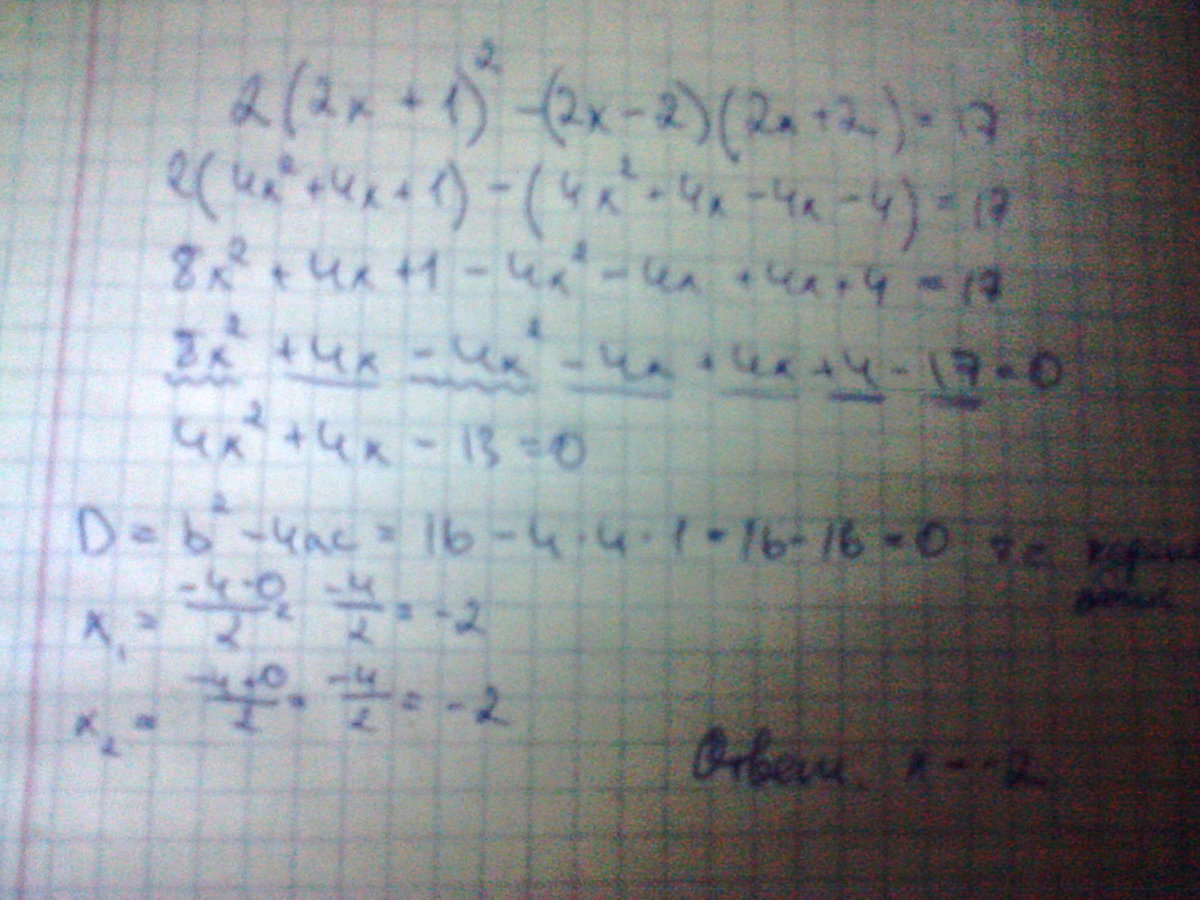 2(2x + 1)² - (2x - 2)(2x + 2) = 17
2(4x² + 4x + 1) - (4x² + 4x - 4x - 4) = 17
8x² + 4x + 1 - 4x² - 4x + 4x + 4 = 17
8x² + 4x - 4x² - 4x + 4x + 4 - 17 = 0
4x² + 4x - 13 = 0
D = b² - 4ac = 16 - 4 · 4 · 1 = 16 - 16 = 0 т.е
x₁ = -4-0/2 = -4/2 = -2
x₂ = -4+0/2 = -4/2 = -2
Ответ. x = -2